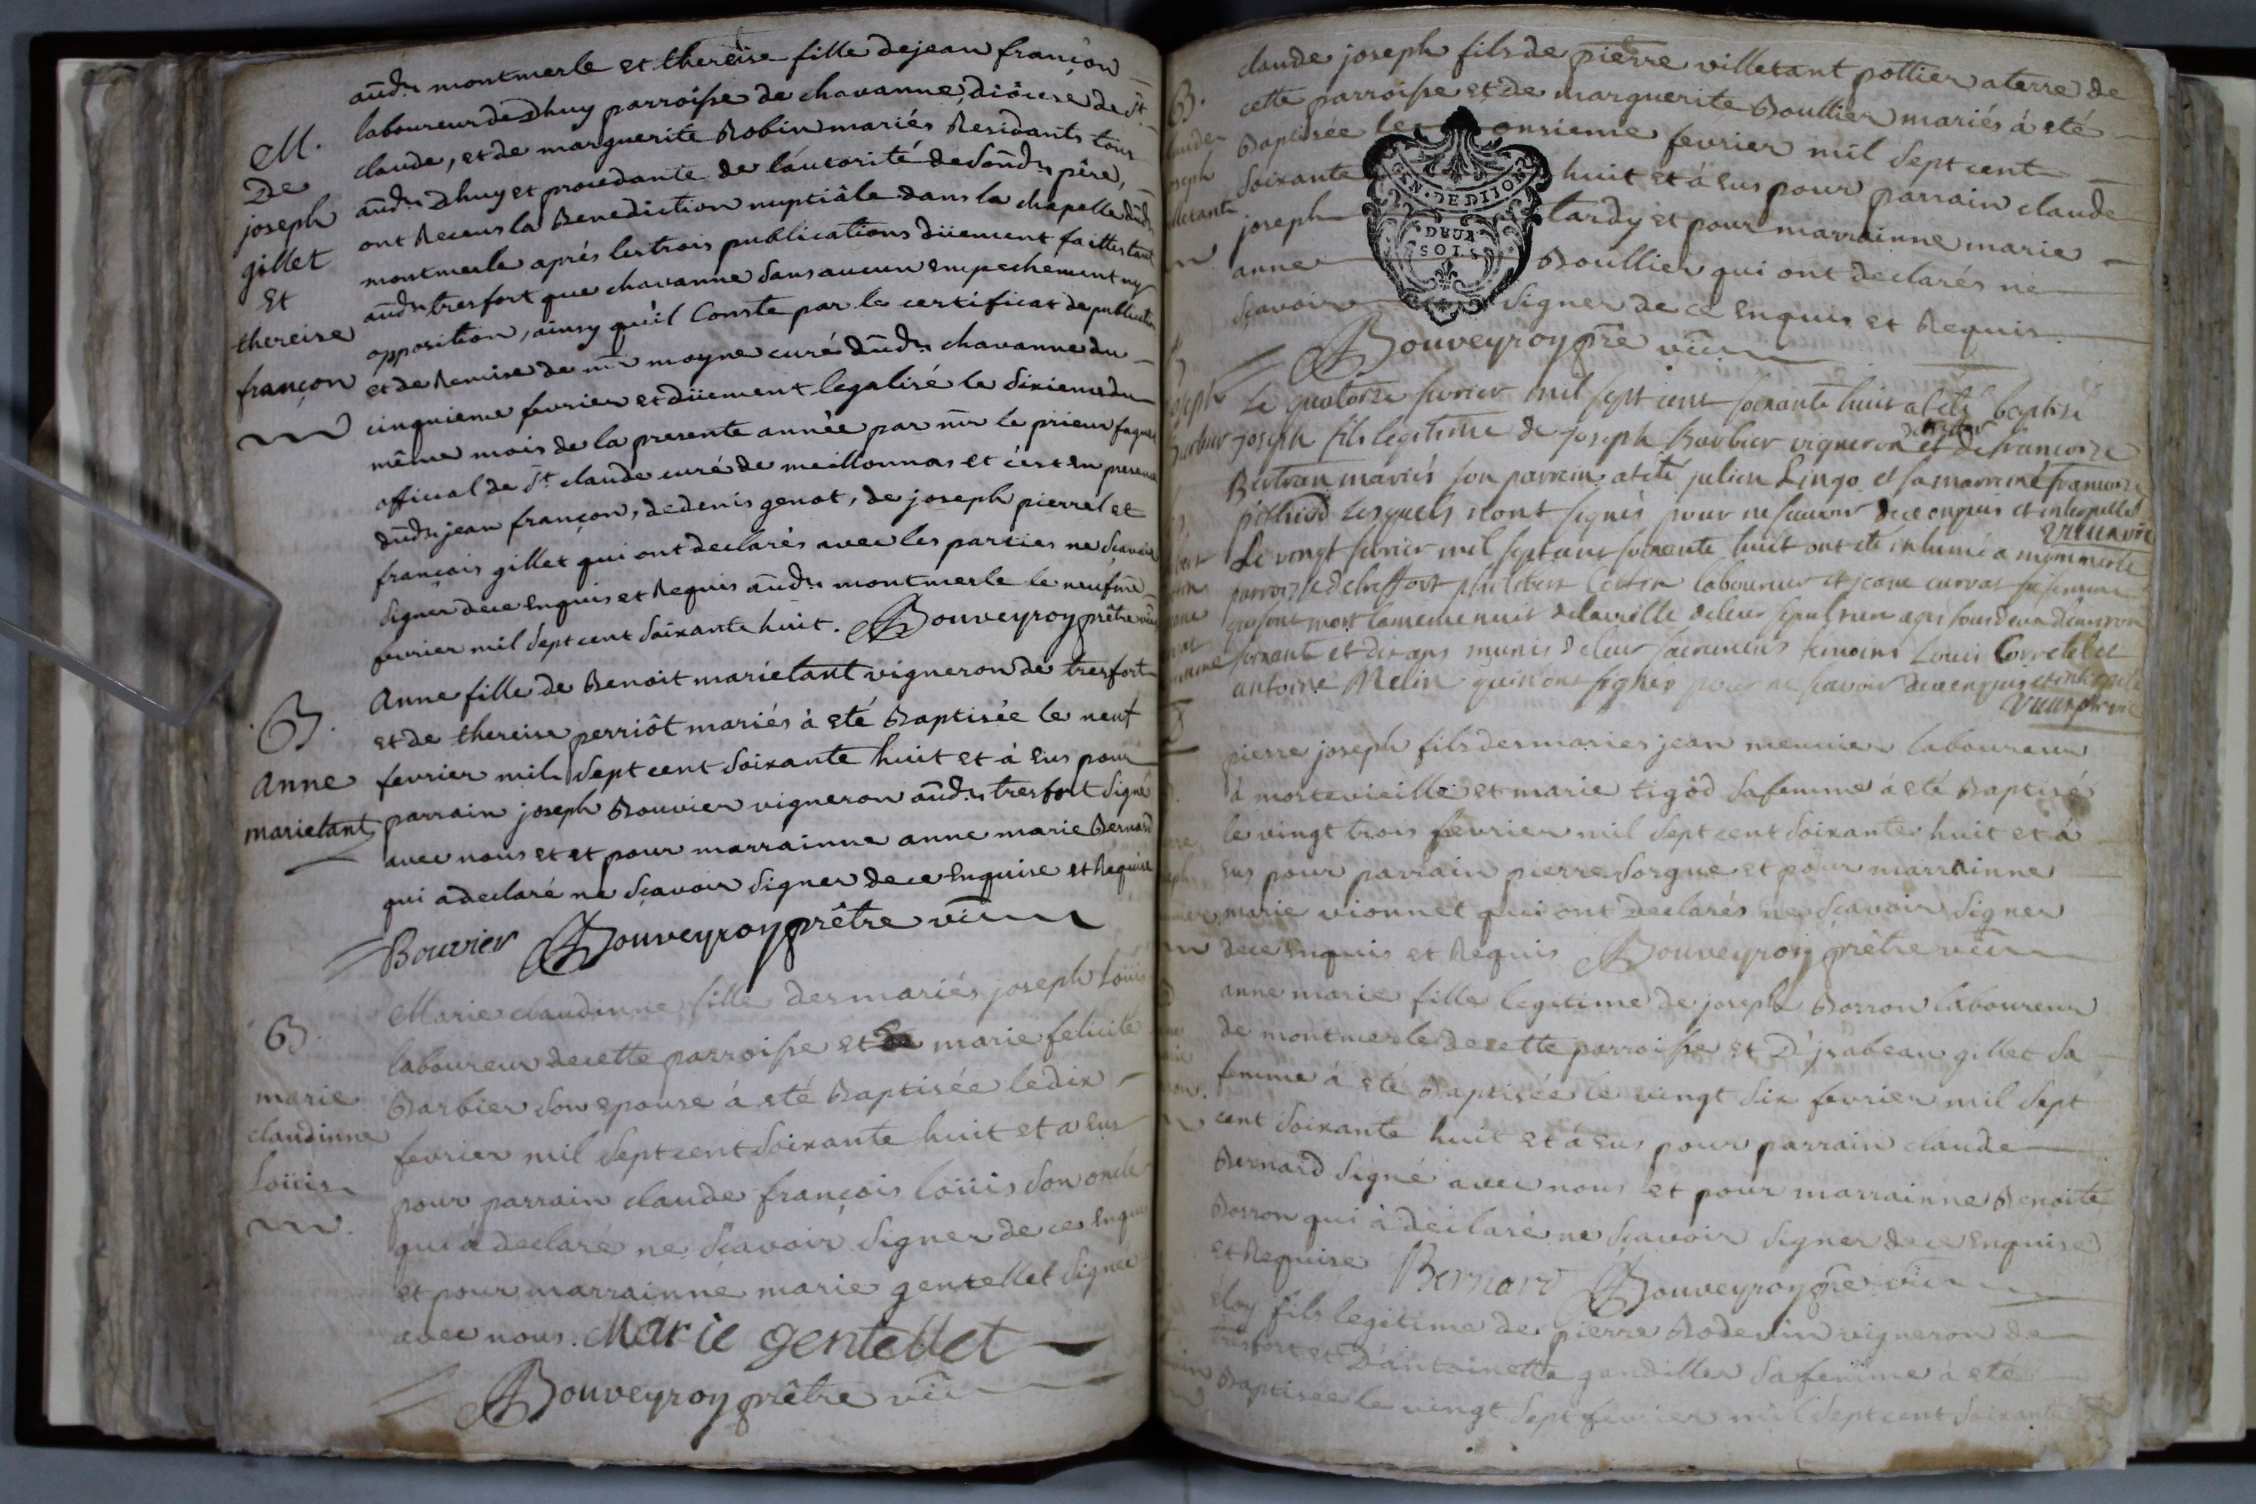 aud.t montmerle et thereise fille de jean françon
laboureur de Dhuy parroisse de chavanne, diôcese de S.t
claude, et de marguerite Robin mariés Residants tous
aud.t Dhuy et procedante de l'autorité de sond.t père,
ont Receus la Benediction nuptiâle dans la chapelle dud.t
montmerle aprés les trois publications düement faittes tant
aud.t tresfort que chavanne sans aucun empechement ny
opposition, ainsy qu'il Conste par le certificat de publication
et de Remise de mr moyne curé dud.t chavanne du
cinquieme fevrier et düement legalisé le sixieme du
même mois de la presente année par mr le prieur
official de S.t claude curé de meillonnas et c'est en presence
dud.t jean françon, de denis genot, de joseph pierrel et
françois gillet qui ont declarés avec les parties ne sçavoir
signer de ce Enquis et Requis aud.t montmerle le neufme
fevrier mil sept cent soixante huit. Bouveyroy prêtre vic
M.
De
joseph
gillet
Et
thereise
françon
Anne fille de Benoit marietant vigneron de tresfort
et de thereise perriôt mariés à eté Baptisée le neuf
fevrier mil sept cent soixante huit et à Eus pour
parrain joseph Bouvier vigneron aud.t tresfort signé
avec nous et et pour marrainne anne marie Bernard
qui a declaré ne sçavoir signer de ce Enquise et Requise
Bouvier Bouveyroy prêtre vic
B.
Anne
marietant
Marie claudinne fille des mariés joseph Loüis
laboureur de cette parroisse et marie felicité
Barbier son epouse à eté Baptisée le dix
fevrier mil sept cent soixante huit et a Eus
pour parrain claude françois loüis son oncle
qui a declaré ne sçavoir signer de ce Enquis
et pour marrainne marie gentellet signée
avec nous. Marie gentellet
Bouveyroy prêtre vic
B.
marie
claudinne
Loüis
claude joseph fils de pierre villetant pottier a terre de
cette parroisse et de marguerite Boullier mariés á eté
Baptisée le onsieme fevrier mil sept cent
soixante huit et á Eus pour parrain claude
joseph tardy et pour marrainne marie
anne Boullier qui ont declarés ne
sçavoir signer de ce Enquis et Requis
Bouveyroy pre vic
GEN. DE DIJON
DEUX
SOLS
B.
Le quatorze fevrier mil sept cent soixante huit a été baptisé
joseph fils legitime de joseph Barbier vigneron et de françoise
Bertran mariés son parrein a été julien Lingo et sa marreine françoise
pithiod lesquels n'ont signés pour ne sçavoir de ce enquis et interpellés
Le vingt fevrier mil sept cent soixante huit ont été inhumé a montmerle
parroisse de treffort philibert laboureur et jeane curvat sa femme
qui sont mort la meme nuit de la veille de leur sepulture agés tous deux d'environ
soixante et dix ans munis de leur sacremens temoins Louis Corretel et
antoine Melin qui n'ont signés pour ne scavoir de ce enquis et interpellé
pierre joseph fils des maries jean meunier laboureur
á mortevieille et marie tigôd sa femme á eté Baptisé
le vingt trois fevrier mil sept cent soixante huit et á
Eus pour parrain pierre sorgue et pour marrainne
marie vionnet qui ont declarés ne sçavoir signer
de ce Enquis et Requis Bouveyroy prêtre vic
anne marie fille legitime de joseph Borron laboureur
de montmerle de cette parroisse et D'jsabeau gillet sa
femme á eté Baptisée le vingt six fevrier mil sept
cent soixante huit et á Eus pour parrain claude
Bernard signé avec nous et pour marrainne Benoite
Borron qui à déclaré ne sçavoir signer de ce Enquise
et Requise Bernard Bouveyroy pre vic
éloy fils legitime de pierre Rodevin vigneron de
tresfort et D'antoinette gandillet sa femme á eté
Baptisée le vingt sept fevrier mil sept cent soixante